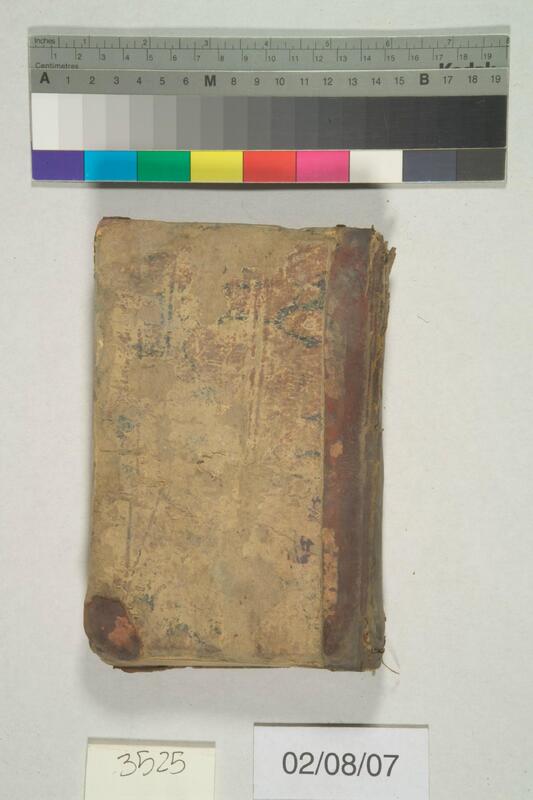 Inches 1 2 3 4 5 6 7 8
1 2 3 4 5 6 7 8 9 10 11 12 13 14 15 16 17 18 19
Centimetres
A 1 2 3 4 5 6 M 8 9 10 11 12 13 14 15 B 17 18 19
3525
02/08/07